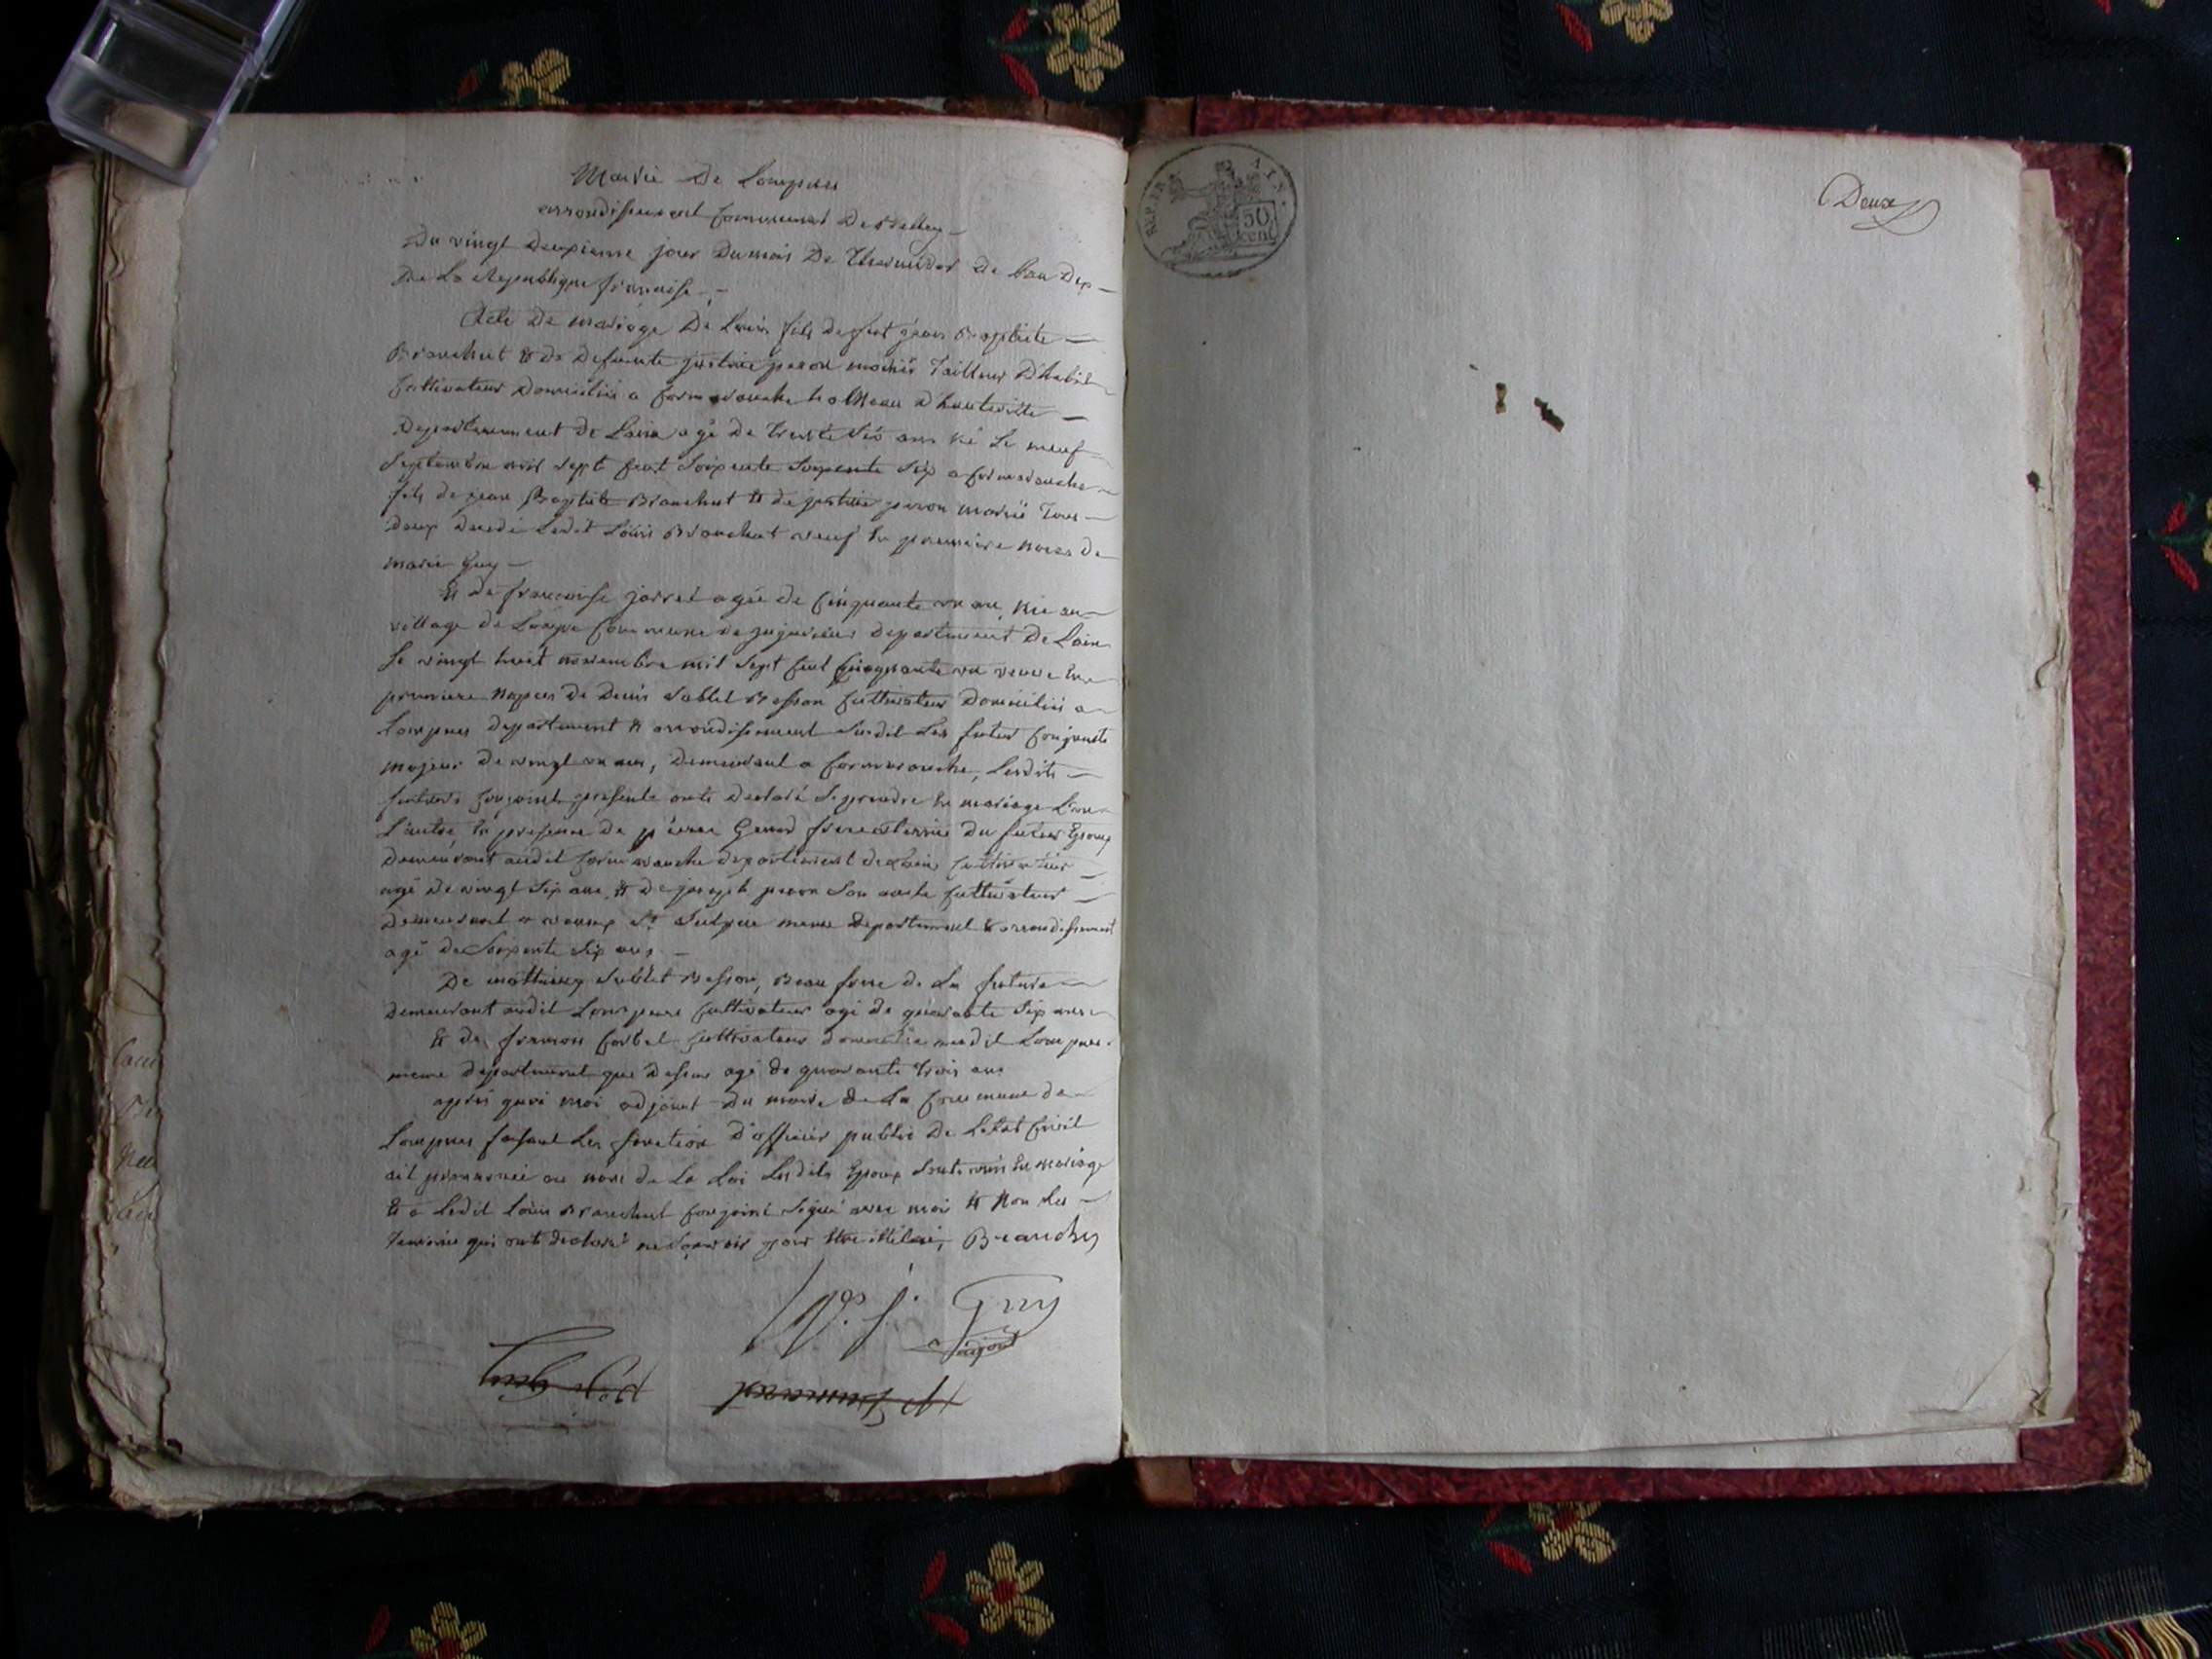 Mairie De Lompnes
arrondissement Communal De Belley
Du vingt Deuxieme jour Dumois De Thermidor de lan Dix
De La Republique francaise
Acte De mariage De Louis fils de feut jean Baptiste
Branchut & de Defunte justine peron mariés Tailleur D'habit
Cultivateur Domicilié a Cormaranche hameau d'hauteville
Departement de Laina agé de trente six ans né Le neuf
Septembre mil sept Cent Soixente Soixente six a Cormaranche
fils de jean Baptiste Branchut & de justine peron mariés Tous
Deux Decedé Ledit Louis Branchut veuf En premiere noces de
marie Guy
& de francoise jarret agée de Cinquante un an, née au
village de Longe Commune de jujurieux departement De Lain
Le vingt huit novembre mil sept Cent Cinquante un veuve En
premiere noces de Denis Sublet Besson Cultivateur Domicilié a
Lompnes departement & arrondissement Susdit Les futur Conjoints
majeur de vingt un ans, Demeurant a Cormaranche, Lesdits
futurs Conjoint presents onts Declaré Se prendre En mariage L'un
L'autre En presence de pierre Genod frere uterin Du futur Epoux
demeurant audit Cormaranche departement de Lain Cultivateur
agé de vingt six ans, & de joseph peron Son oncle Cultivateur
Demeurant a vaux St Sulpice meme Departement & arrondissement
agé de Soixente six ans
De mathieux Sublet Besson, Beau frere de La future
demeurant audit Lompnes Cultivateur agé de quarante six ans
& de Cultivateur domicilié audit Lompnes
meme departement que Dessus agé de quarante trois ans
après quoi moi adjoint du maire de La Commune de
Lompnes faisant Les fonction D'officier public De Letat Civil
ait prononcé au nom de La Loi Lesdits Epoux Sonts unis En mariage
& a Ledit Louis Branchut Conjoint Signé avec moi & non Les
temoins qui onts declaré ne Scavoir pour Etre illétré, Branchu
Guy
adjoint
Deux
REP. FRA
50
cent
AIN